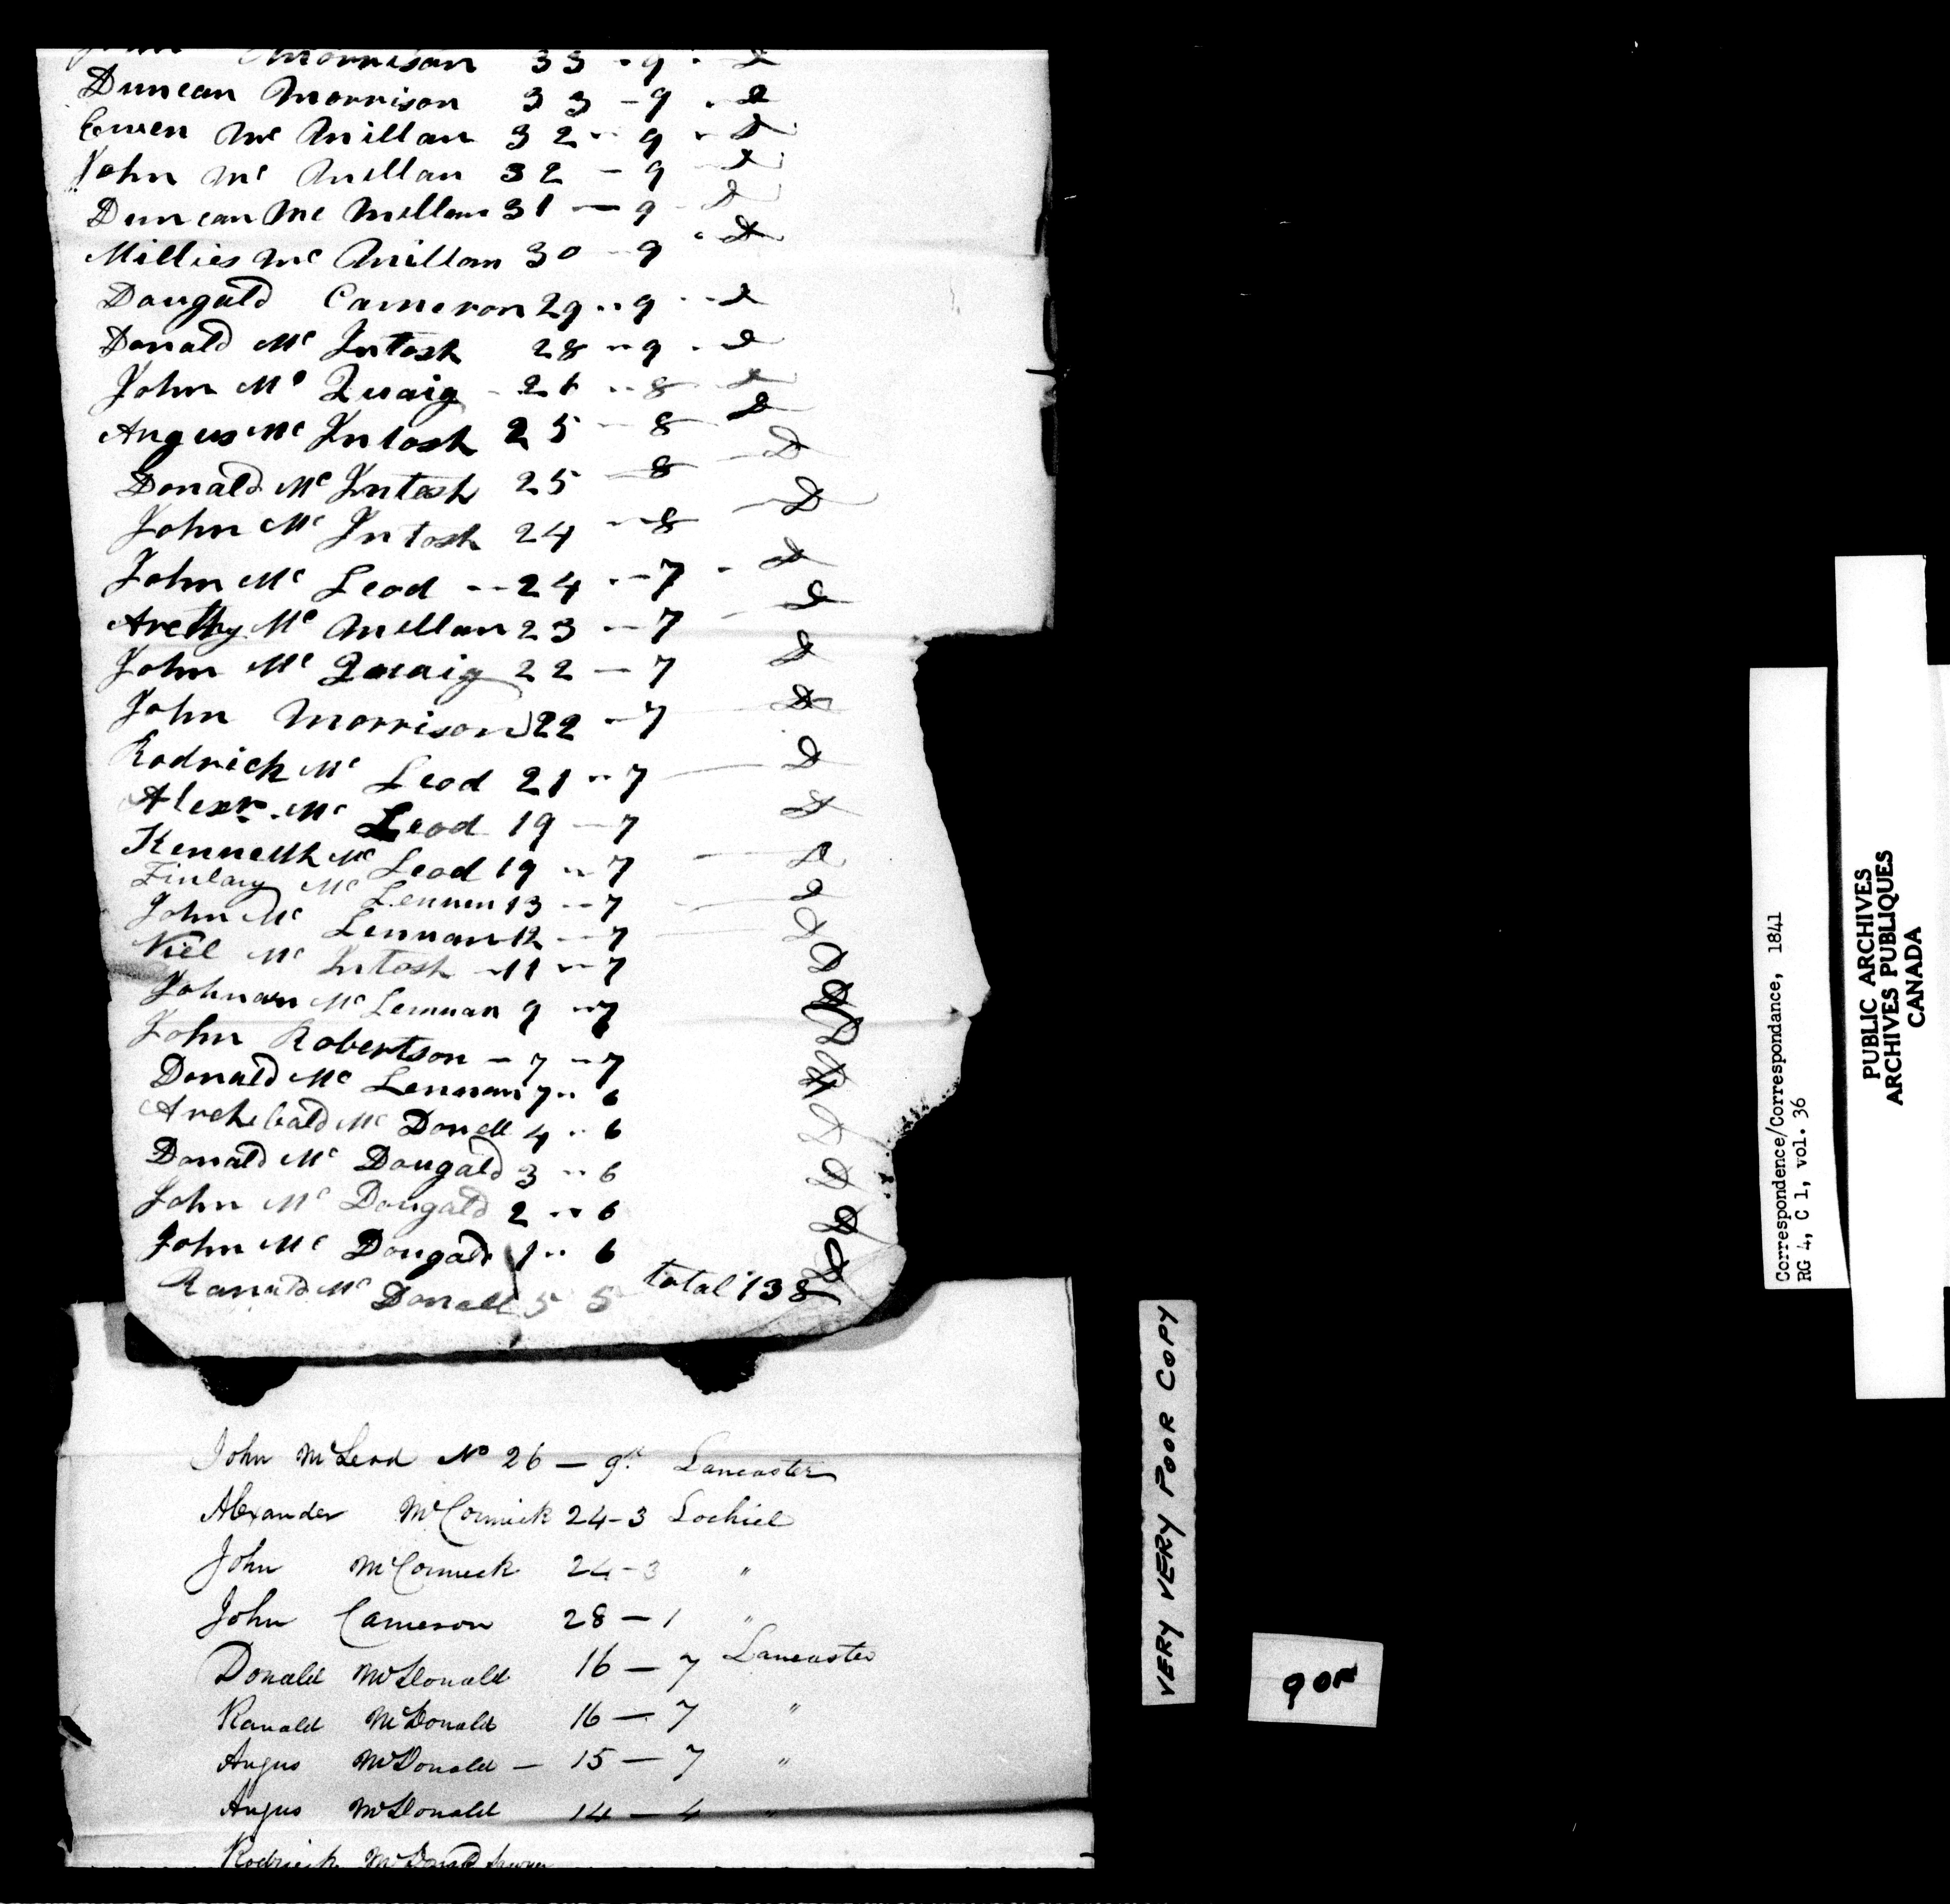 John Morrison 33 - 9 - D
Duncan Morrison 33 - 9 - D
Ewen Mc Millan 32 - 9 - D
John Mc Millan 32 - 9 - D
Duncan Mc Millan 31 - 9 - D
Mc Millan 30 - 9 " D
Dougald Cameron 29 - 9 - D
Donald Mc Intosh 28 - 9 - D
John Mc Quaig - 26 - 8 - D
Angus Mc Intosh 25 - 8 - D
Donald Mc Intosh 25 - 8 - D
John Mc Intosh 24 - 8 - D
John Mc Leod -- 24 - 7 - D
Mc Millan 23 - 7 - D
John Mc Quaig 22 - 7 D
John Morrison 22 - 7 - D
Rodrick Mc Leod 21 - 7 - D
Alexr. Mc Leod 19 - 7 D
Kenneth Mc Leod 19 - 7 - D
Finlay Mc Lennen 13 - 7 - D
John Mc Lennan 12 - 7 - D
Niel Mc Intosh - 11 - 7 D
Mc Lennan 9 - 7 D
John Robertson - 7 - 7 D
Donald Mc Lennan 7 - 6
Archibald Mc Donell 4 - 6 D
Donald Mc Dougald 3 - 6 D
John Mc Dougald 2 - 6 D
John Mc Dougald 1 - 6 D
Ranald Mc Donell 5 5 total 138
John McLeod No 26 — 9th Lancaster
Alexander McCormick 24-3 Lochiel
John McCormick 24-3 "
John Cameron 28 — 1 "
Donald McDonald 16 — 7 Lancaster
Ranald McDonald 16 — 7 "
Angus McDonald — 15 — 7 "
Angus McDonald 14 — 4 "
Rodrick McDonald
VERY VERY POOR COPY
Correspondence/Correspondance, 1841
RG 4, C 1, vol. 36
PUBLIC ARCHIVES
ARCHIVES PUBLIQUES
CANADA